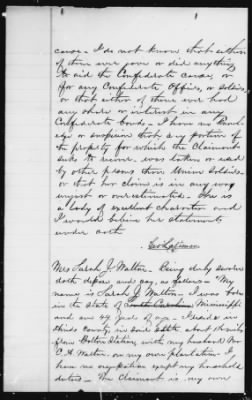 cause - I do not know that either
of them ever gave or did anything
to aid the Confederate cause, or
for any Confederate Officer, or Soldier,
or that either of them ever had
any share or interest in any
Confederate Bonds - I have no knowl-
edge or suspicion that any portion of
the property for which the Claimant
seeks to recover, was taken or used
by other persons than Union Soldiers -
or that her claim is in any way
unjust or over estimated - She is
a lady of excellent Character and
I would believe her statements
under oath
Mrs Sarah J. Walton. Being duly sworn
doth depose and say, as follows - "My
name is Sarah J Walton - I was born
in the State of Mississippi
and am 44 years of age - I reside in
Hinds County, in said State about
from Bolton Station, with my husband Mr
Walton, on my own plantation - I
have no occupation except my household
duties - The Claimant is my own